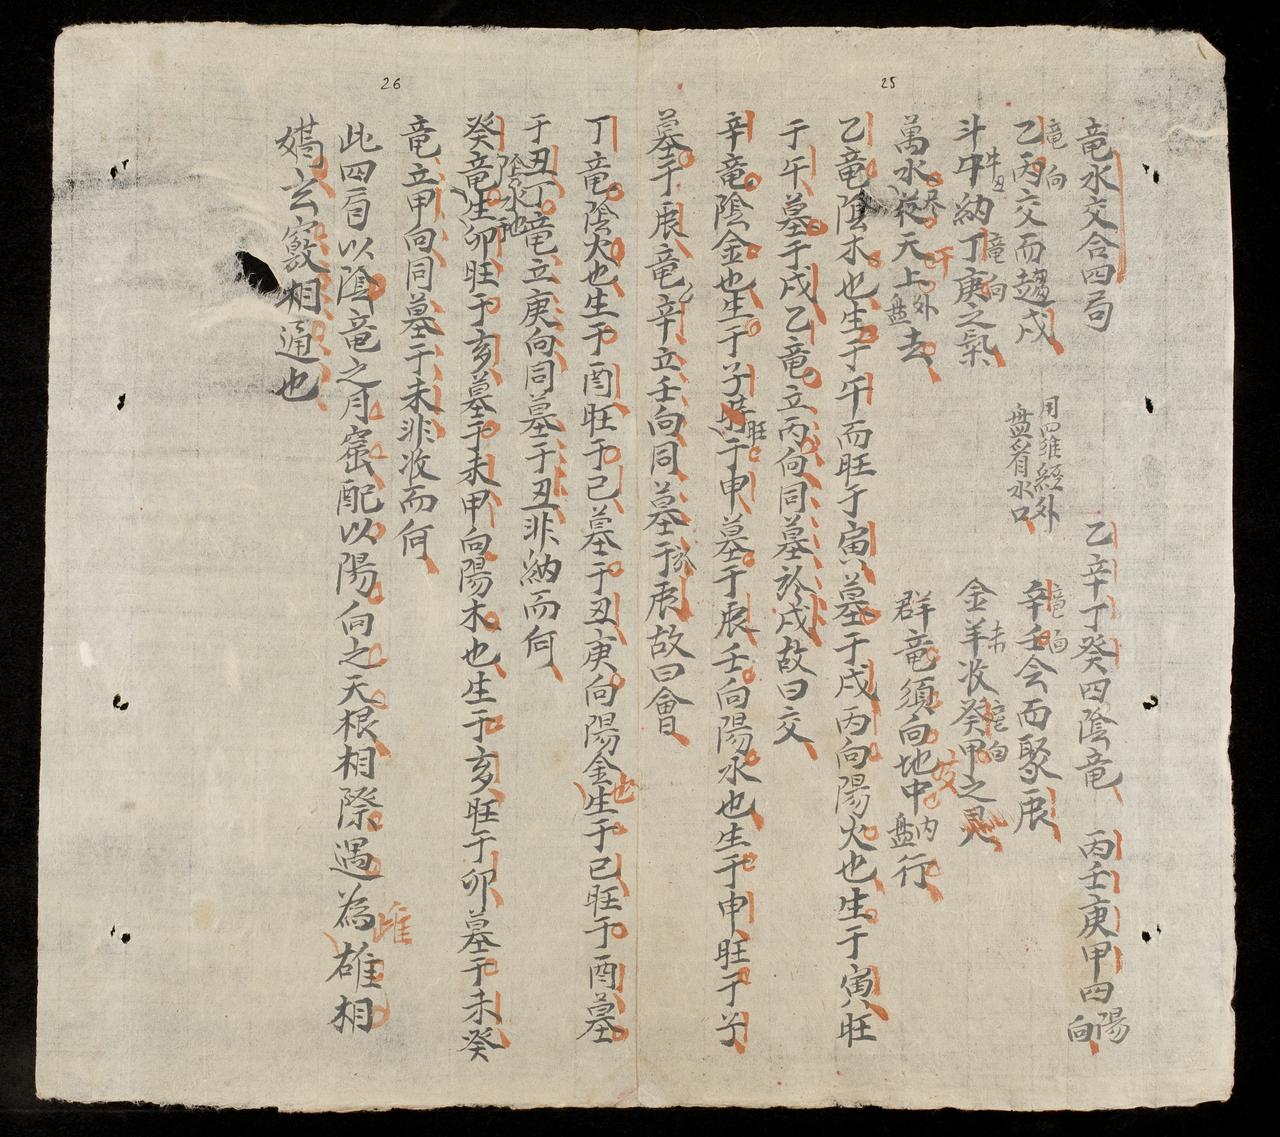 25
竜水交合四局 乙辛丁癸四陰竜 丙壬庚甲四陽向
乙竜丙向交而趨戌 用四維経外盤看水口 辛竜壬向会而聚辰
斗牛牛丑納丁竜庚向之氣 金羊未收癸竜甲向之灵
萬水尽從天干上外盤去 群竜須向地支中内盤行
乙竜陰木也生于午而旺于寅墓于戌丙向陽火也生于寅旺
于午墓于戌乙竜立丙向同墓於戌故曰交
辛竜陰金也生于子旺于申墓于辰壬向陽水也生于申旺于子
墓于辰竜辛立壬向同墓于辰故曰會
26
丁竜陰火也生于酉旺于巳墓于丑庚向陽金也生于巳旺于酉墓
于丑丁竜立庚向同墓于丑非納而何
癸竜陰水也生卯旺于亥墓于未甲向陽木也生于亥旺于卯墓于未癸
竜立甲向同墓于未非收而何
此四局以陰竜之月窟配以陽向之天根相際遇為雌雄相
媾玄竅相通也